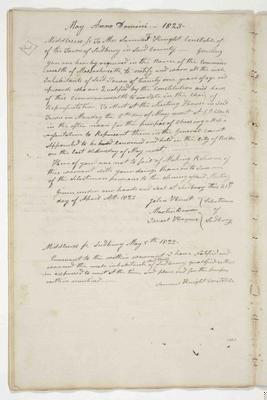 May Anno Domini 1823
Middlesex ss To Mr Samuel Knight Constable of
of the Town of Sudbury in said County Greeting
you are hereby required in the name of the Common
wealth of Massachusetts to notify and warn all the male
Inhabitants of said Town of twenty one years of age and
upwards who are qualified by the constitution and laws
of this Commonwealth to vote in the choice of
Representatives To meet at the Meeting House in said
Town on Monday the day of May next at o'Clock
in the after noon for the purpose of choosing a Re
presentative to Represent them in the General Court
appointed to be convened and held in the City of Boston
on the last Wednesday of May next
Here of you are not to fail of Making Return of
this warrant with your doings thereon to
of the Selectmen previous to the Meeting
Given under our hands and seal at Sudbury this 21st
day of April AD 1823
John Hunt Selectmen
of
Israel Haynes Sudbury
Middlesex ss Sudbury May 5th 1823
Pursuant to the within warrant I have Notified and
warned the male inhabitants of Sudbury qualified as there
in expressed to meet at the time and place and for the purpose
within mentioned
Samuel Knight Constable